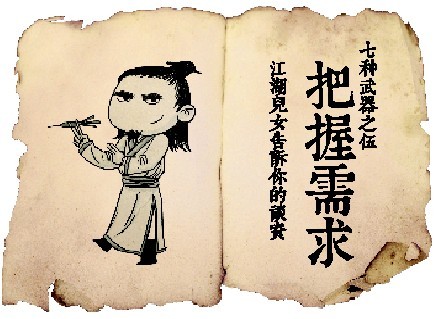 七种武器之伍
把握需求
江湖兒女告訴你的談資